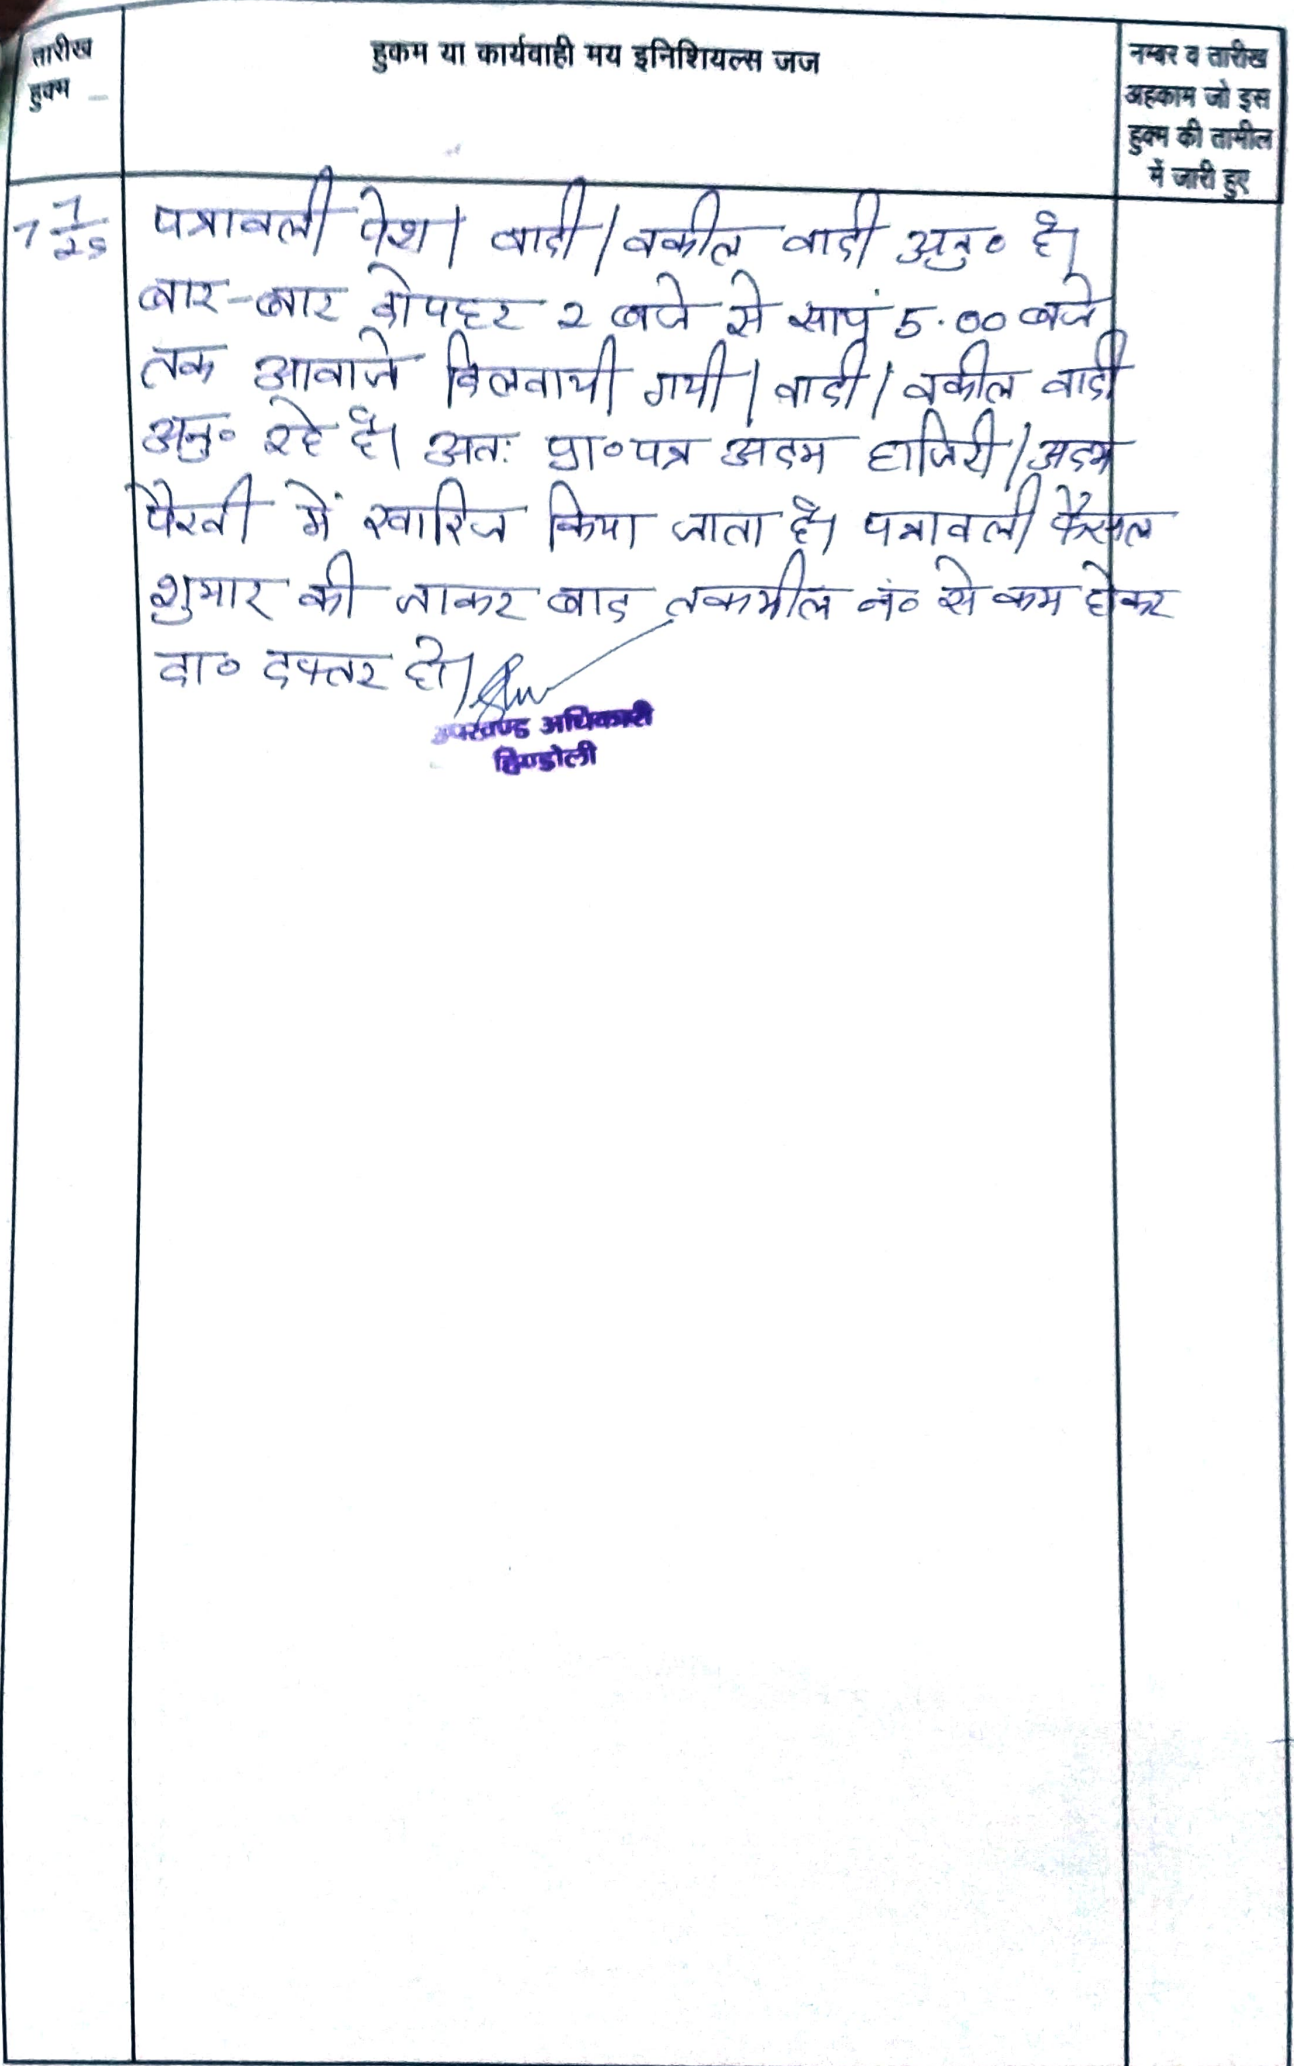 तारीख
हुक्म
हुकम या कार्यवाही मय इनिशियल्स जज
नम्बर व तारीख
अहकाम जो इस
हुक्म की तामील
में जारी हुए
7 7/25
पत्रावली पेश। वादी/वकील वादी अनु० है।
बार-बार दोपहर 2 बजे से सायं 5.00 बजे
तक आवाजे दिलवायी गयी। वादी/वकील वादी
अनु० रहे है। अतः प्रा०पत्र अदम हाजिरी/अदम
पैरवी में खारिज किया जाता है। पत्रावली फैसल
शुमार की जाकर बाद तकमील नं० से कम होकर
दा० दफ्तर हो।
उपखण्ड अधिकारी
हिण्डोली